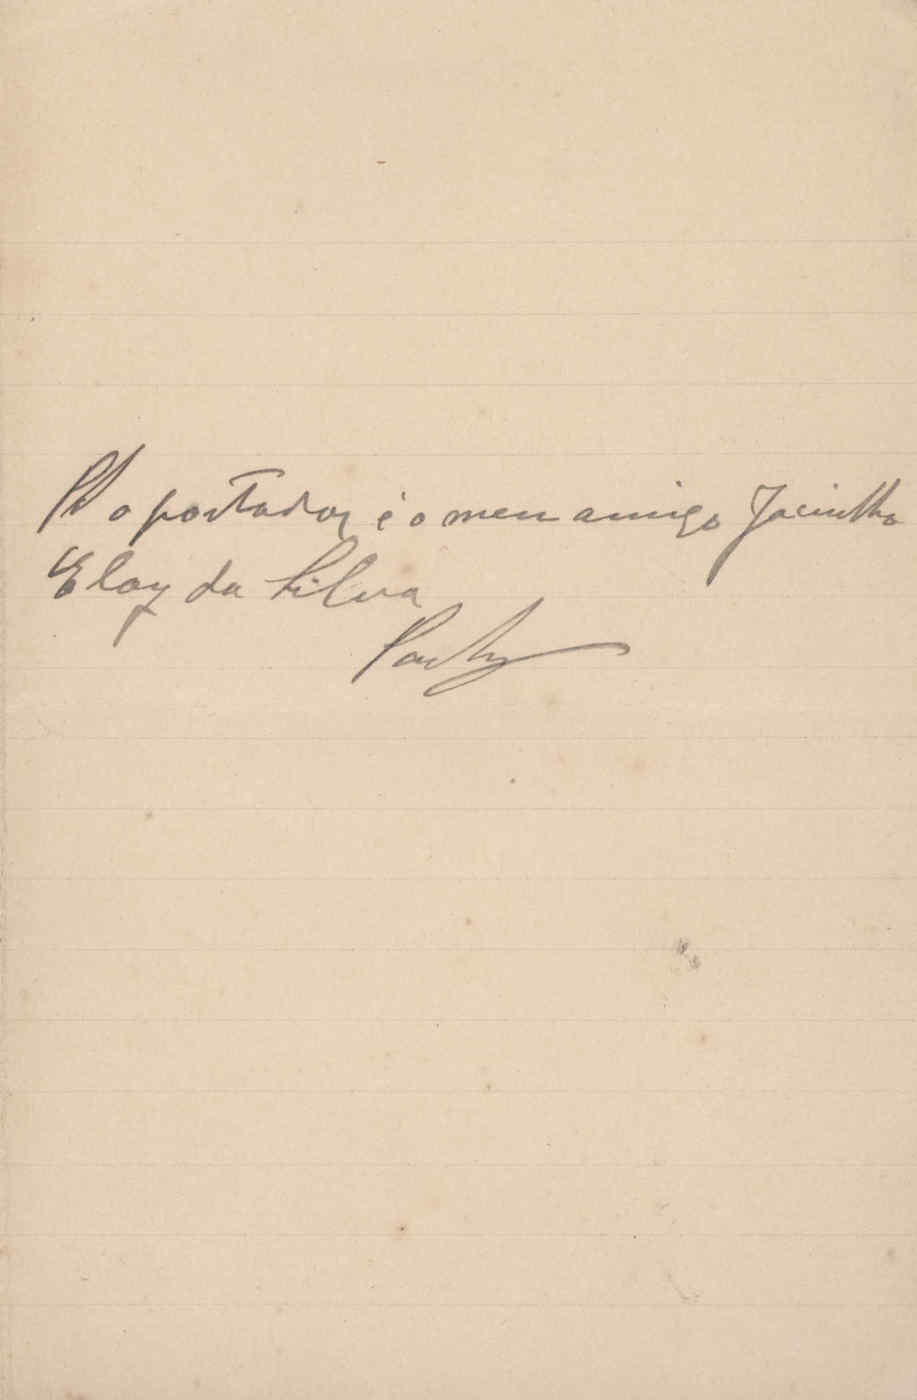 PS o portador é o meu amigo Jacintho
Eloy da Silva